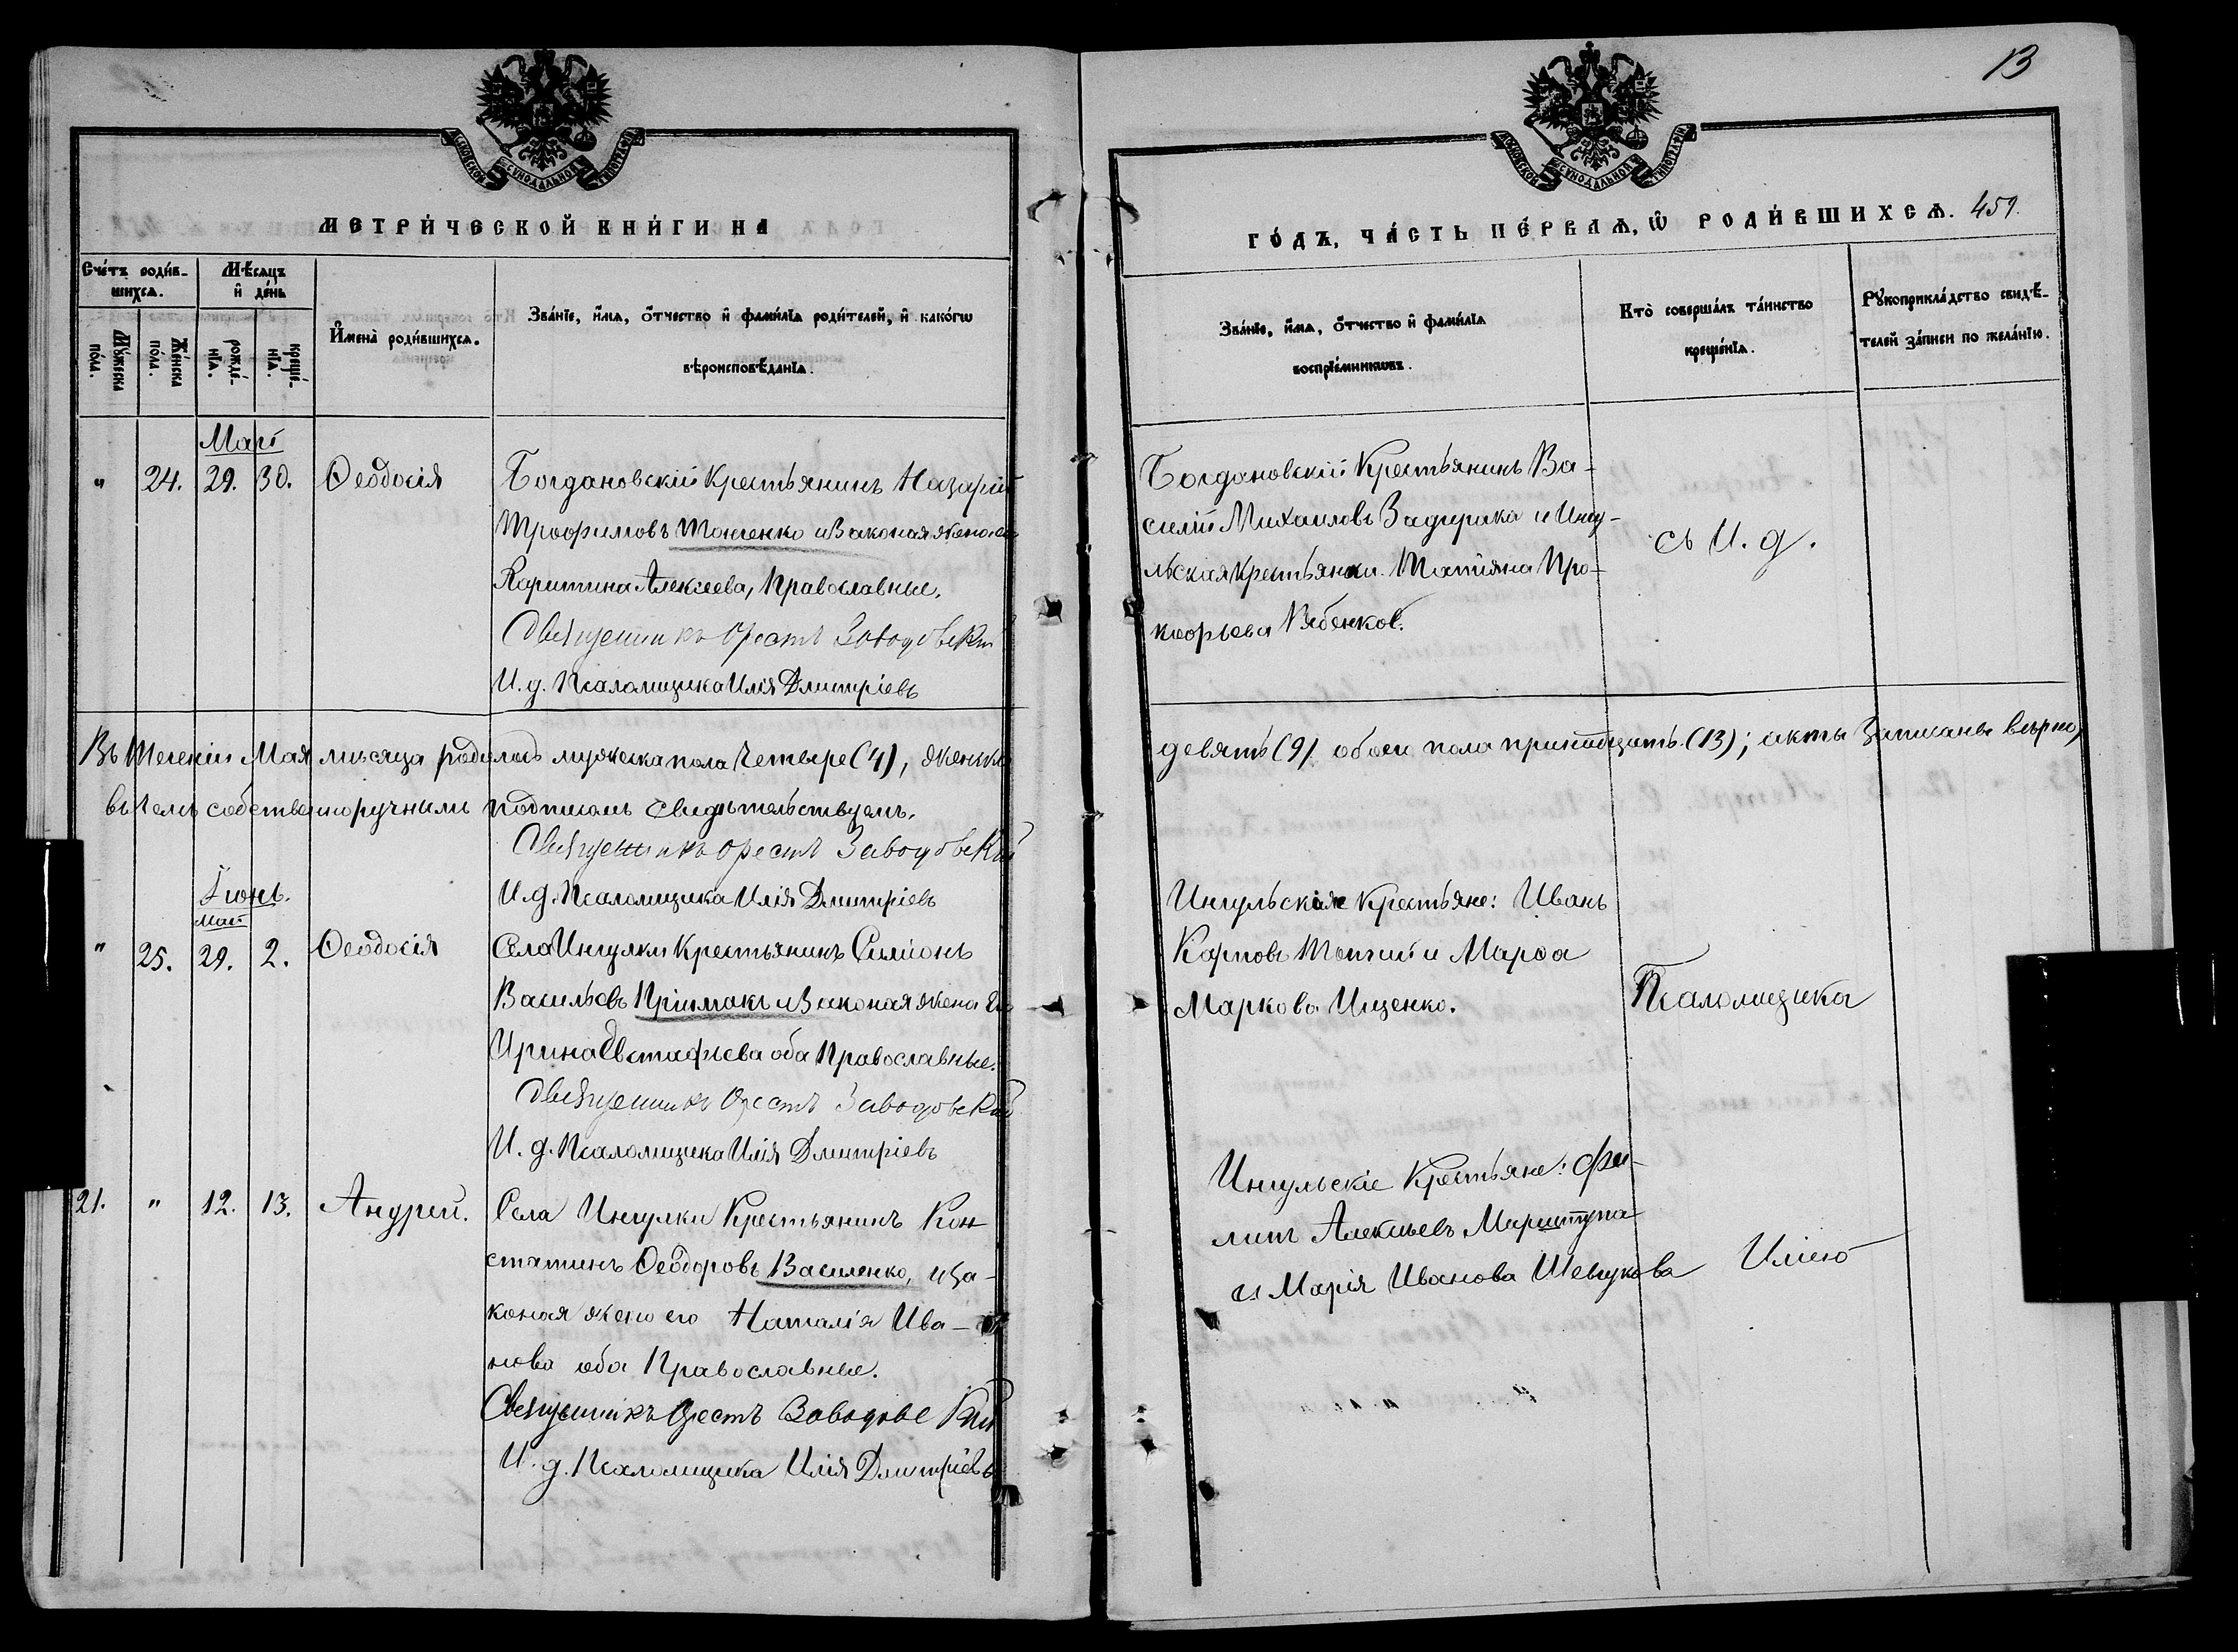 13
МОСКОВСКОЙ СѴНОДАЛЬНОЙ ТИПОГРАФІИ
МОСКОВСКОЙ СѴНОДАЛЬНОЙ ТИПОГРАФІИ
МЕТРИ́ЧЕСКОЙ КНИ́ГИ НА
ГО́ДЪ, ЧА́СТЬ ПЕ́РВАѦ, Ѿ РОДИ́ВШИХСѦ. 459.
Сче́тъ роди́в-
шихсѧ.
Мꙋ́жеска по́ла.
Же́нска по́ла.
Мѣ́сѧцъ
и҆ де́нь
рожде́-
нїѧ.
креще́-
нїѧ.
И҆мена̀ роди́вшихсѧ.
Зва́нїе, и҆́мѧ, ѻ҆́тчество и҆ фами́лїѧ роди́телей, и҆ како́гѡ
вѣроисповѣ́данїѧ.
Зва́нїе, и҆́мѧ, ѻ҆́тчество и҆ фами́лїѧ
воспрїе́мникѡвъ.
Кто̀ соверша́лъ та́инство
креще́нїѧ.
Рꙋкоприкла́дство свидѣ́-
телей за́писи по жела́нїю.
Май
" 24. 29. 30. Ѳеодосія
Богдановскій Крестьянинъ Назарій
Трофимовъ Тонченко и Законая жена его
Харитина Алексеева, Православные.
Священникъ Орестъ Заводовскій
И. д. Псаломщика Илія Дмитріевъ
Богдановскій Крестьянинъ Ва-
силій Михаиловъ Задирака и Ингу-
льская Крестьянка Татіяна Про-
кофьева Рябенков.
съ И. д.
Въ Теченіи Мая мѣсяца родилось мужеска пола Четыре (4), женска
девять (9) обоего пола тринадцать (13); акты Записаны вѣрно,
въ чемъ собственноручнымъ подписомъ Свидѣтельствуемъ.
Священникъ Орестъ Заводовскій
И. д. Псаломщика Илія Дмитріевъ
Іюнь.
Май
" 25. 29. 2. Ѳеодосія
Села Ингулки Крестьянинъ Симіонъ
Васильевъ Приймакъ и Законая жена Его
Ирина Евстафіева оба Православные.
Священникъ Орестъ Заводовскій
И. д. Псаломщика Илія Дмитріевъ
Ингульскіе Крестьяне: Иванъ
Карповъ и Марѳа
Маркова Ищенко.
Псаломщика
21. " 12. 13. Андрей.
Села Ингулки Крестьянинъ Кон
статинъ Ѳеодоровъ Василенко, и За-
коная жена его Наталія Ива-
нова оба Православные.
Священникъ Орестъ Заводовскій
И. д. Псаломщика Илія Дмитріевъ
Ингульскіе Крестьяне: Фи-
липъ Алексѣевъ
и Марія Иванова Шевчукова
Иліею